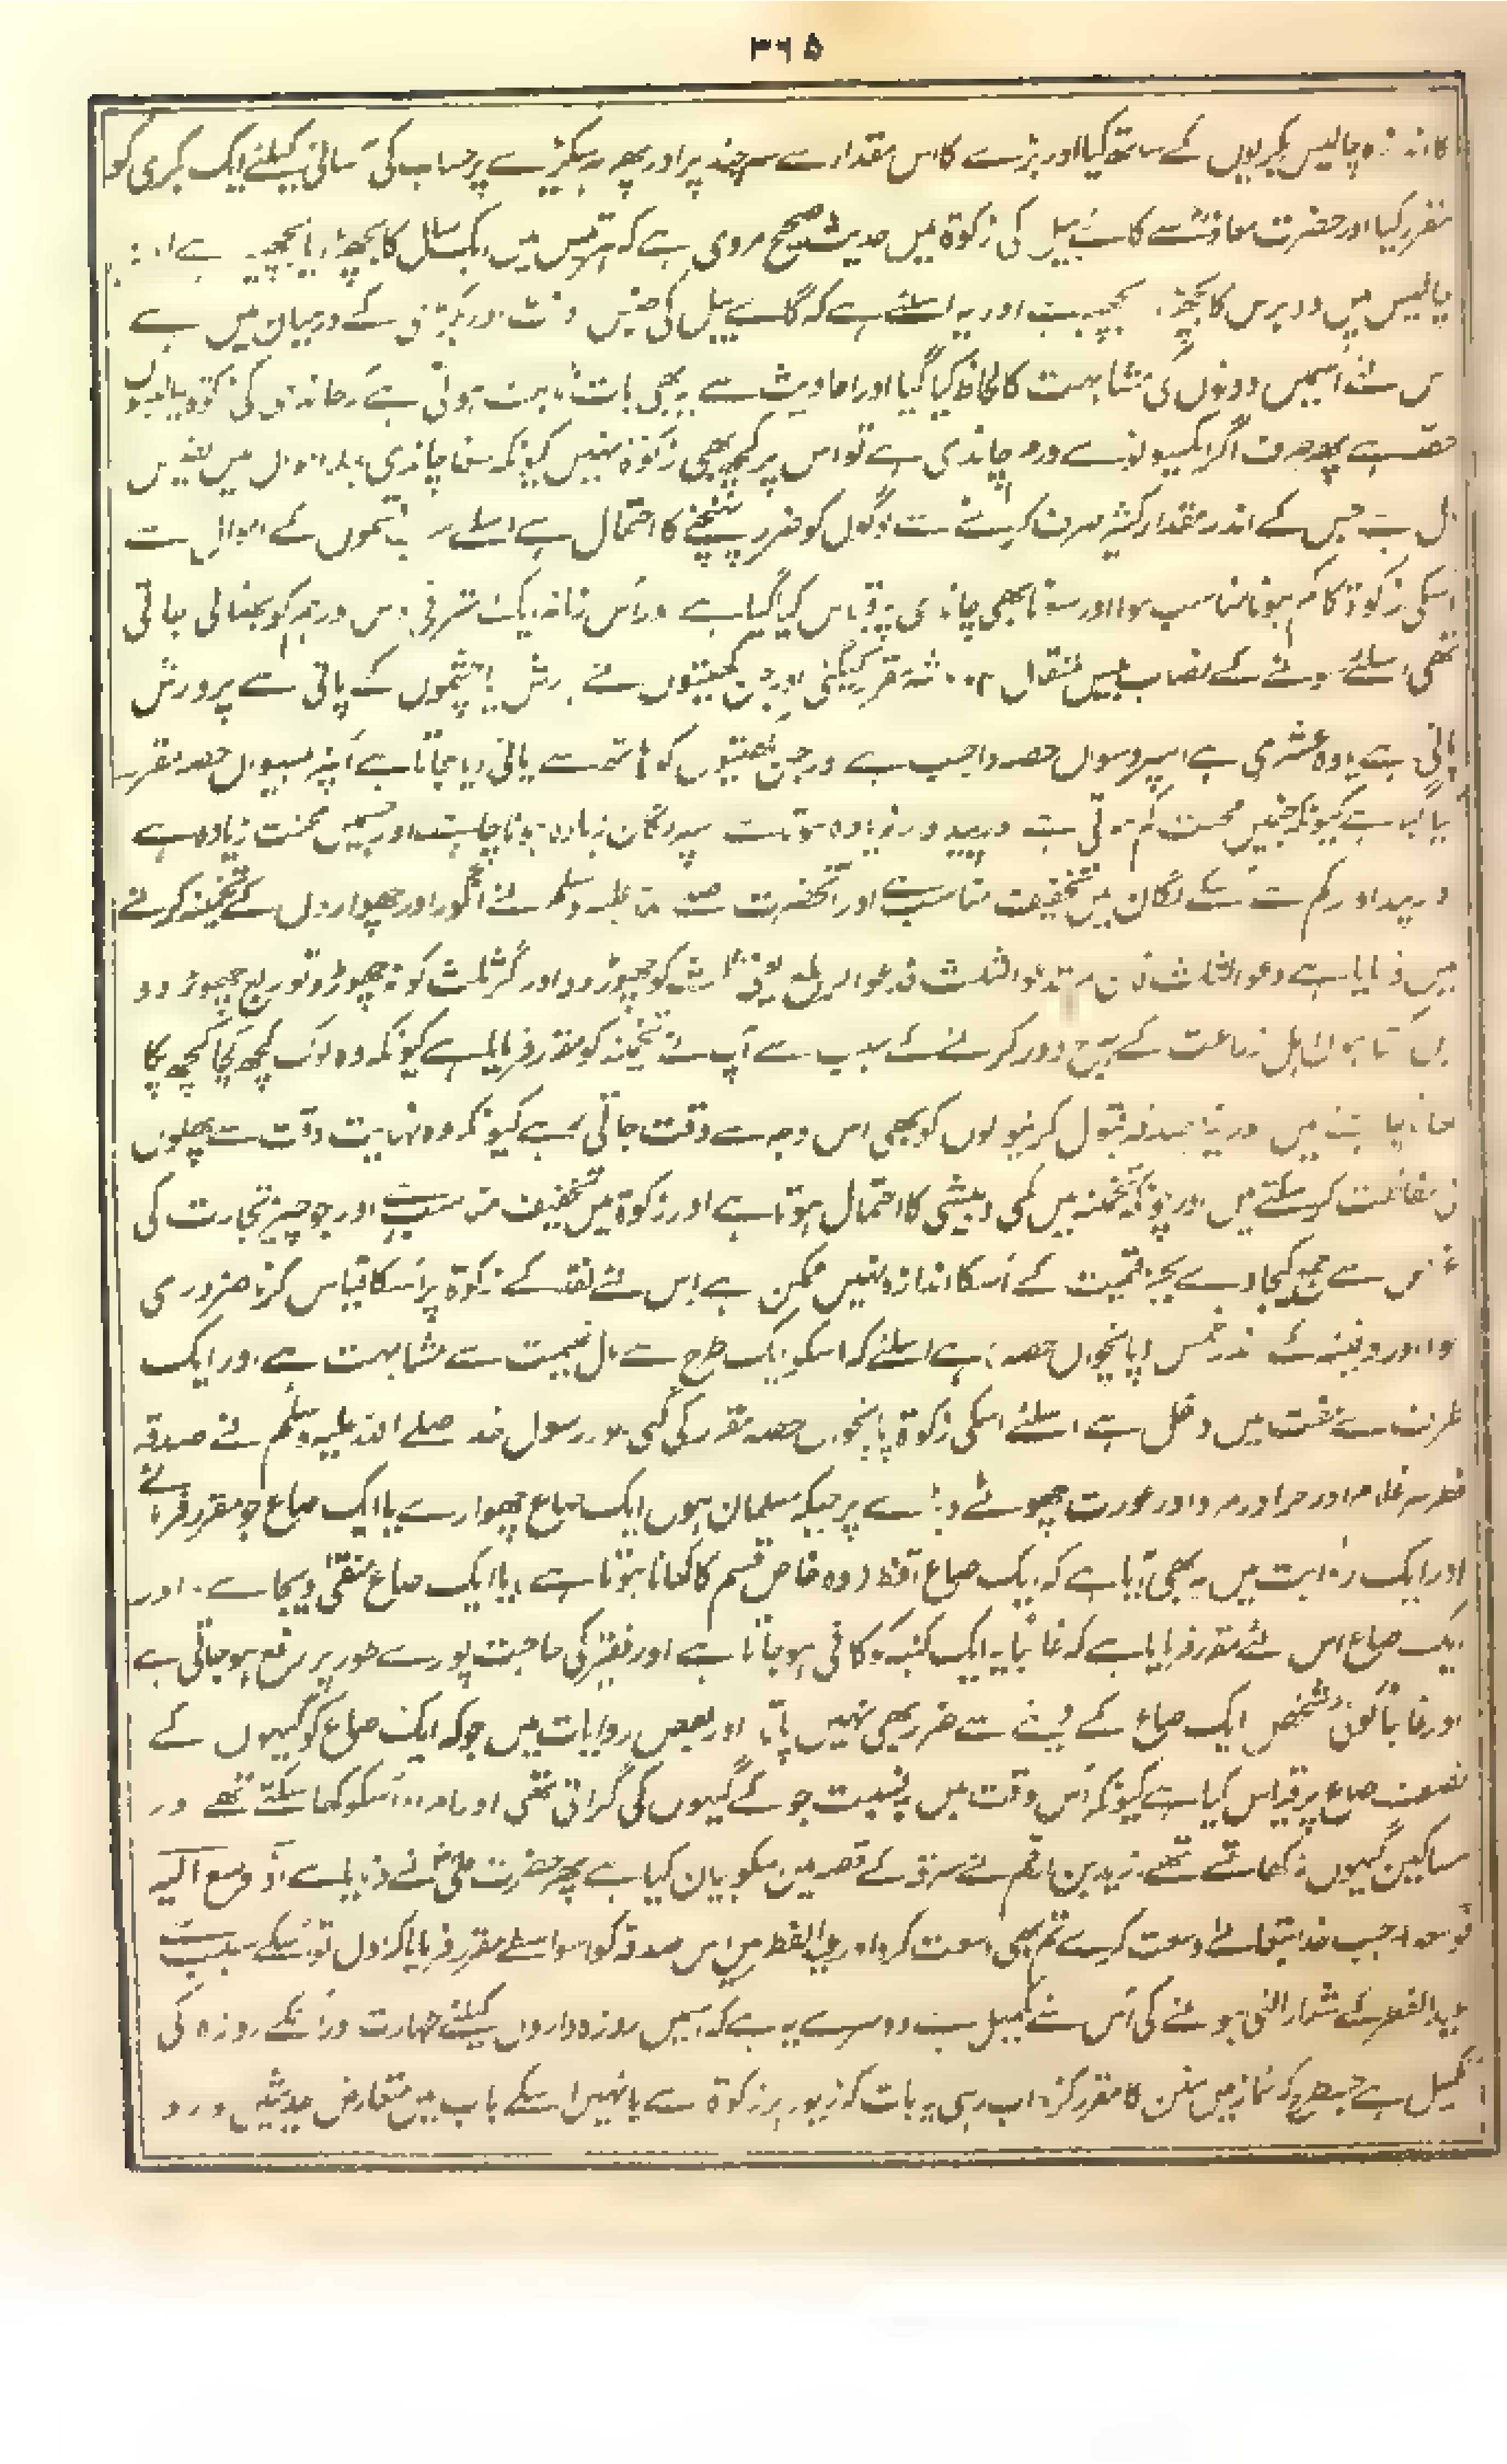 ۳۶۵
کا اندازہ چالیس بکریوں کے ساتھ کیا اور بڑے کا اس مقدار سے سہ چند پر اور پھر ہر سیکڑے پر حساب کی آسانی کیلئے ایک بکری کو
مقرر کیا اور حضرت معاذؓ سے گائے بیل کی زکوٰۃ میں حدیث صحیح مروی ہے کہ ہر تیس میں ایک سال کا بچھڑا یا بچھیہ ہے اور
چالیس میں دو برس کا بچھڑا بچھیہ اور یہ اسلئے ہے کہ گائے بیل کی جنس اونٹ اور بکری کے درمیان میں ہے
اس لئے اسمیں دونوں کی مشابہت کا لحاظ کیا گیا اور احادیث سے یہ بھی بات ثابت ہوتی ہے کہ چاندی کی زکوٰۃ چالیسواں
حصہ ہے پھر صرف اگر ایکسو نوے درم چاندی ہے تو اس پر کچھ بھی زکوٰۃ نہیں کیونکہ سونا چاندی اموال میں نفیس
مال ہے جس کے اندر مقدار کثیر صرف کرنے سے لوگوں کو ضرر پہنچنے کا احتمال ہے اسلئے سب قسموں کے اموال سے
اسکی زکوٰۃ کا کم ہونا مناسب ہوا اور سونا بھی چاندی پر قیاس کیا گیا ہے اور اُس زمانہ میں ایک اشرفی دس درہم کو بھنائی جاتی
تھی اسلئے سونے کے نصاب بیس مثقال مقرر کیگئی اور جن کھیتوں نے بارش یا چشموں کے پانی سے پرورش
پائی ہے یا وہ عشری ہے اسپر دسواں حصہ واجب ہے اور جن کھیتوں کو ہاتھ سے پانی دیا جاتا ہے اُنپر بیسواں حصہ مقرر
کیا گیا ہے کیونکہ جنمیں محنت کم ہوتی ہے اور پیداور زیادہ ہوتی ہے اسپر لگان زیادہ ہونا چاہئے اور جسمیں محنت زیادہ ہے
اور پیداور کم ہے اُسکے لگان میں تخفیف مناسب ہے اور آنحضرت صلے اللہ علیہ وسلم نے انگور اور چھواروں کے تخمینہ کرنے
میں فرمایا ہے دعوا الثلث فان لم تدعوا الثلث فدعوا الربع یعنی ثلث کو چھوڑ دو اور اگر ثلث کو نہ چھوڑو تو ربع چھوڑ دو
میں کہتا ہوں اہل زراعت کے حرج دور کرنے کے سبب سے آپ نے تخمینہ کو مقرر فرمایا ہے کیونکہ وہ لوگ کچھ کچا کچھ پکا
کھانا چاہتے ہیں اور نیز صدقہ قبول کرنیوالوں کو بھی اس وجہ سے دقت جاتی رہے کیونکہ وہ نہایت دقت سے پھلوں
کی حفاظت کر سکتے ہیں اور چونکہ تخمینہ میں کمی و بیشی کا احتمال ہوتا ہے اور زکوٰۃ میں تخفیف مناسب ہے اور جو چیز تجارت کی
غرض سے جمع کیجاوے بجز قیمت کے اُسکا اندازہ نہیں ممکن ہے اس لئے نقد کے زکوٰۃ پر اُسکا قیاس کرنا ضروری
ہوا اور دفینہ کے اندر خمس (پانچواں حصہ) ہے اسلئے کہ اسکو ایک طرح سے مال غنیمت سے مشابہت ہے اور ایک
طرف سے مفت میں داخل ہے اسلئے اسکی زکوٰۃ پانچواں حصہ مقرر کی گئی اور رسول خدا صلے اللہ علیہ وسلم نے صدقہ
فطر ہر غلام اور حر اور مرد اور عورت چھوٹے و بڑے پر جبکہ مسلمان ہوں ایک صاع چھوارے یا ایک صاع جو مقرر فرمائے
اور ایک روایت میں یہ بھی آیا ہے کہ ایک صاع اقط (وہ خاص قسم کا کھانا ہوتا ہے) یا ایک صاع منقیٰ دیجاے۔ اور
ایک صاع اس لئے مقرر فرمایا ہے کہ غالباً یہ ایک کنبہ کو کافی ہو جاتا ہے اور فقیر کی حاجت پورے طور پر رفع ہو جاتی ہے
اور غالباً کوئی شخص ایک صاع کے دینے سے ضرر بھی نہیں پاتا اور بعض روایات میں جو کہ ایک صاع کو گیہوں کے
نصف صاع پر قیاس کیا ہے کیونکہ اُس وقت میں بنسبت جو کے گیہوں کی گرانی تھی اور امراء اُسکو کھا سکتے تھے اور
مساکین گیہوں نہ کھاتے تھے۔ زید بن ارقم نے سرقہ کے قصہ میں اسکو بیان کیا ہے پھر حضرت علیؓ نے فرمایا ہے اذا وسع اللہ
فوسعوا جب خدا تعالے وسعت کرے تم بھی وسعت کرو اور عید الفطر میں اس صدقہ کو اسواسطے مقرر فرمایا کہ اول تو اُسکے سبب سے
عید الفطر کے شعار الٰہی ہونے کی اُس سے تکمیل ہے دوسرے یہ ہے کہ اسمیں روزہ داروں کیلئے طہارت اور اُنکے روزہ کی
تکمیل ہے جسطرح کہ نماز میں سنن کا مقرر کرنا۔ اب رہی یہ بات کہ زیور پر زکوٰۃ ہے یا نہیں اسکے باب میں متعارض حدیثیں وارد